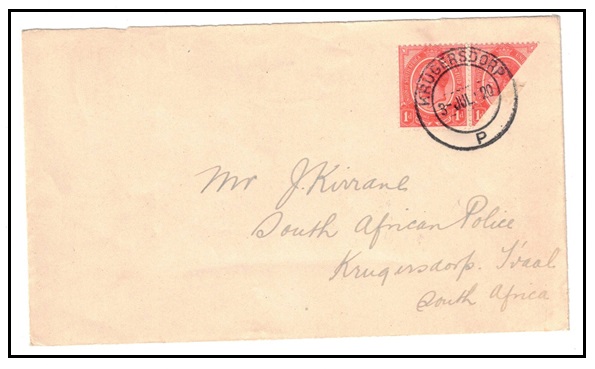 KRUGERSDORP
3-JUL 20
P
1d 1d
Mr J. Kirrane
South African Police
Krugersdorp. Tvaal
South Africa